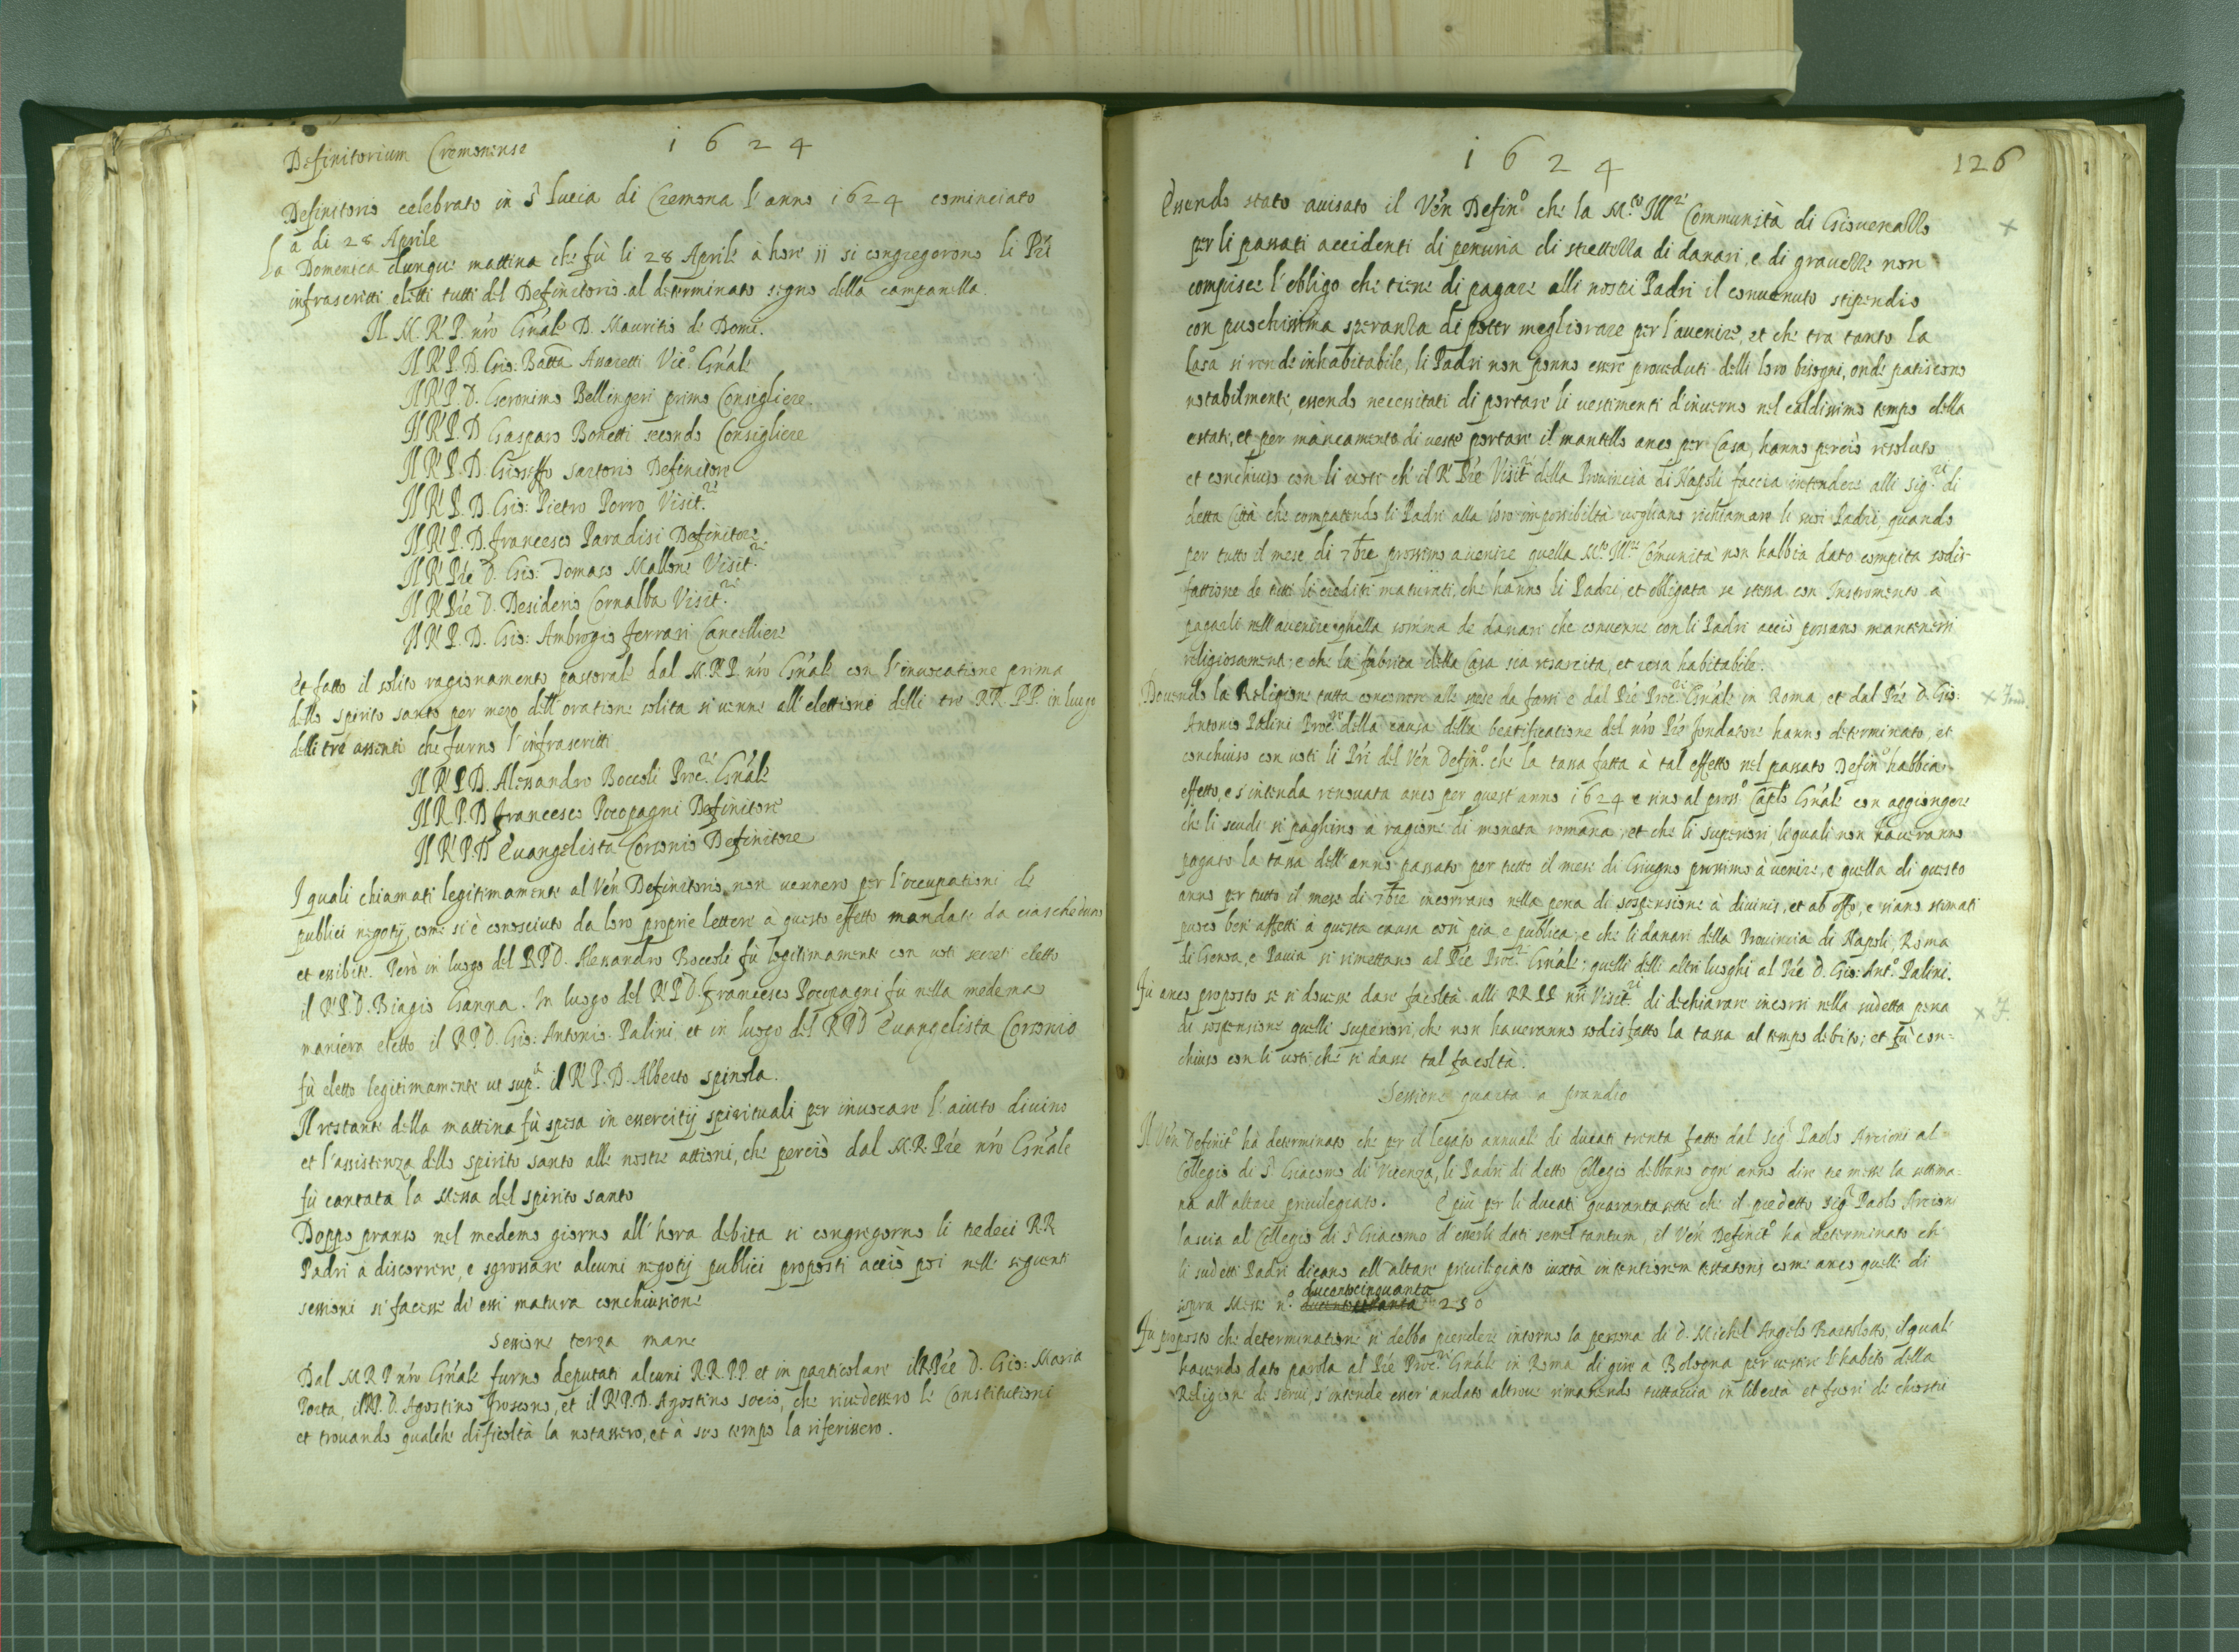 Definitorium Cremonense
1624
Definitorio celebrato in S. Lucia di Cremona l'anno 1624 cominciato
a di 28 Aprile
La Domenica dunque mattina che fù li 28 Aprile à hore 11 si congregorono li Pri
infrascritti eletti tutti del Definitorio al determinato segno della campanella.
Il M.R.P. nro Gnale D. Mauritio de Domi.
Il R.P.D. Gio: Batta Assaretti Vic.º Gnale
Il R.P.D. Geronimo Bellingeri primo Consigliere.
Il R.P.D. Gasparo Bonetti secondo Consigliere
Il R.P.D. Gioseffo Sartorio Definitore
Il R.P.D. Gio: Pietro Porro Visit.re
Il R.P.D. Francesco Paradisi Definitore
Il R. Pre D. Gio: Tomaso Mallone Visit.re
Il R. Pre D. Desiderio Cornalba Visit.re
Il R.P.D. Gio: Ambrogio Ferrari Cancelliere
Et fatto il solito ragionamento pastorale dal M.R.P. nro Gnale con l'invocatione prima
dello spirito santo per mezo dell'oratione solita si venne all'elettione delli tre RR. PP. in luogo
delli tre assenti che furno l'infrascritti
Il R.P.D. Alessandro Boccoli Proc.re Gnale
Il R.P.D. Francesco Pocopagni Definitore
Il R.P.D. Evangelista Corsonio Definitore
I quali chiamati legitimamente al Ven Definitorio, non vennero per l'occupationi de
publici negotij, come si è conosciuto da loro proprie lettere a questo effetto mandate da ciascheduno
et essibite. Però in luogo del R.P.D. Alessandro Boccoli fù legitimamente con voti secreti eletto
il R.P.D. Biagio Gianna. In luogo del R.P.D. Francesco Pocopagni fu nella medema
maniera eletto il R.P.D. Gio: Antonio Palini, et in luogo del R.P.D. Evangelista Corsonio
fù eletto legitimamente ut sup.ª il R.P.D. Alberto Spinola.
Il restante della mattina fù spesa in essercitij spirituali per invocare l'aiuto divino
et l'assistenza dello spirito santo alle nostre attioni, che perciò dal M.R. Pre nro Gnale
fù cantata la Messa del spirito santo
Doppo pranso nel medemo giorno all'hora debita si congregorno li tredeci RR
Padri à discorrere, e sgrossare alcuni negotij publici proposti acciò poi nelle seguenti
sessioni si facesse di essi matura conchiusione
Sessione terza mane
Dal M.R.P. nro Gnale furno deputati alcuni RR.PP. et in particolare il R. Pre D. Gio: Maria
Porta, il R.P.D. Agostino Froscono, et il R.P.D. Agostino Socio, che rivedessero le Constitutioni
et trovando qualche dificoltà la notassero, et à suo tempo la riferissero.
1624
126
Essendo stato avisato il Ven Defin.º che la M.to Ill.re Communità di Giovenallo
per li passati accidenti di penuria di strettezza di danari, e di gravezze non
compisce l'obligo che tiene di pagare alli nostri Padri il convenuto stipendio
con puochissima speranza di poter megliorare per l'avenire, et che tra tanto la
Casa si rende inhabitabile, li Padri non ponno essere proveduti delli loro bisogni, onde patiscono
notabilmente, essendo necessitati di portare li vestimenti d'inverno nel caldissimo tempo della
estate, et per mancamento di veste portare il mantello anco per Casa, hanno perciò resoluto
et conchiuso con li voti che il R. Pre Visit.re della Provincia di Napoli faccia intendere alli Sig.ri di
detta Città che compatendo li Padri alla loro impossibiltà vogliano richiamare li suoi Padri, quando
per tutto il mese di 7bre prossimo avenire quella M.to Ill.re Comunità non habbia dato compita sodis-
fattione de tutti li crediti maturati, che hanno li Padri, et obligata se stessa con Instromento à
pagarli nell'avenire quella somma de danari che convenne con li Padri acciò possano mantenersi
religiosamente; e che la fabrica della Casa sia resarcita, et resa habitabile.
Dovendo la Religione tutta concorrere alle spese da farsi e dal Pre Proc.re Gnale in Roma, et dal Pre D. Gio:
Antonio Palini Proc.re della causa della beatificatione del nro Pre fondatore hanno determinato, et
conchiuso con voti li Pri del Ven Defin.º che la tassa fatta à tal effetto nel passato Defin.º habbia
effetto, e s'intenda renovata anco per quest'anno 1624 e sino al pross.º Caplo Gnale con aggiongere
che li scudi si paghino à ragione di moneta romana, et che li superiori, li quali non haveranno
pagato la tassa dell'anno passato per tutto il mese di Giugno prossimo à venire, e quella di questo
anno per tutto il mese di 7bre incorrano nella pena di sospensione à divinis, et ab offo, e siano stimati
puoco ben affetti à questa causa così pia e publica, e che li danari della Provincia di Napoli, Roma
di Genoa, e Pavia si rimettano al Pre Proc.re Gnale; quelli delli altri luoghi al Pre D. Gio: Ant.º Palini.
Fù anco proposto se si dovesse dare facoltà alli RR.PP. nri Visit.ri di dechiarare incorsi nella sudetta pena
di sospensione quelli superiori, che non haveranno sodisfatto la tassa al tempo debito; et fù con=
chiuso con li voti, che si dasse tal facoltà.
Sessione quarta a prandio
Il Ven Definit.º hà determinato che per il legato annuale di ducati trenta fatto dal Sig.r Paolo Arcioni al
Collegio di S. Giacomo di Vicenza, li Padri di detto Collegio debbano ogn'anno dire tre messe la settima
na all'altare privilegiato. E più per li ducati quaranta sette che il predetto Sig.r Paolo Arcioni
lascia al Collegio di S. Giacomo d'esserli dati semel tantum, il Ven Definit.º ha determinato ch'
li sudetti Padri dicano all'altare privilegiato iuxtà intentionem testatoris come anco quelle di
ducentocinquanta
sopra Messe n.º 250
Fu proposto che determinatione si debba prendere intorno la persona di D. Michel Angelo Bartolotto, il quale
havendo dato parola al Pre Proc.re Gnale in Roma di gire à Bologna per vestire l'habito della
Religione de servi, s'intende esser andato altrove rimanendo tuttavia in libertà et fuori de chiostri